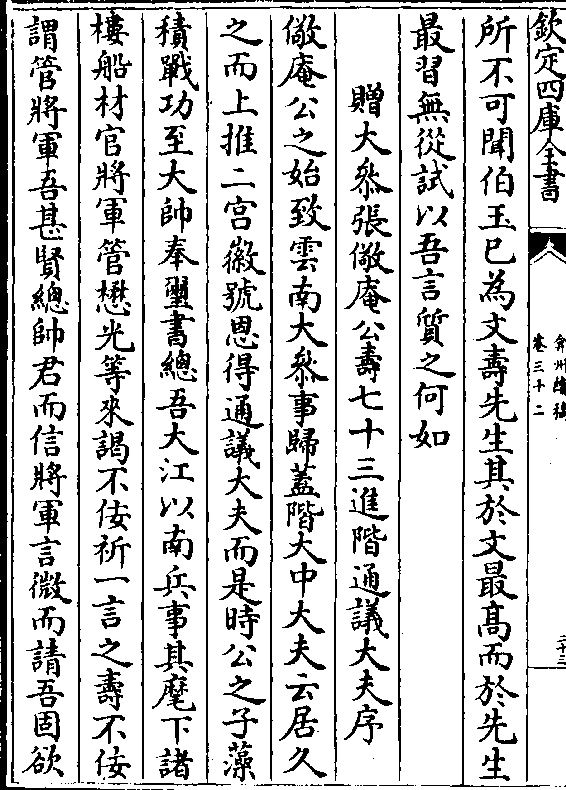 欽定四庫全書
弇州續稿
卷三十二
二十三
所不可聞伯玉已為文壽先生其於文最髙而於先生
最習無從試以吾言質之何如
贈大叅張儆庵公壽七十三進階通議大夫序
儆庵公之始致雲南大叅事歸葢階大中大夫云居久
之而上推二宫徽號恩得通議大夫而是時公之子藻
積戰功至大帥奉璽書總吾大江以南兵事其麾下諸
樓船材官將軍管懋光等來謁不佞祈一言之壽不佞
謂管將軍吾甚賢總帥君而信將軍言微而請吾固欲